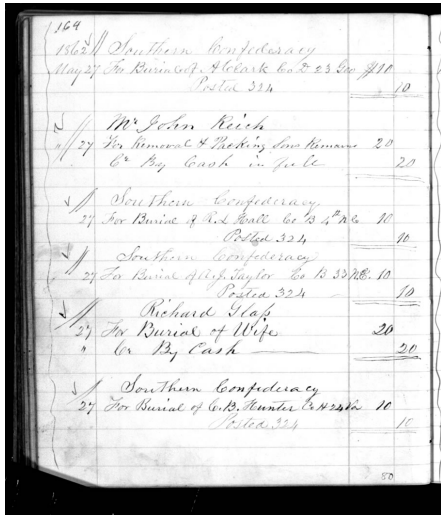 164
1862 Southern Confederacy
May 27 For Burial of A Clark Co D 23 Geo $10
Posted 324 10
Mr John Reich
" 27 For Removal & Packing Sons Remains 20
Cr By Cash in full 20
Southern Confederacy
27 For Burial of R.L. Hall Co B 4th N.C 10
Posted 324 10
Southern Confederacy
27 For Burial of A.J. Taylor Co B 33 N.C. 10
Posted 324 10
Richard Glaſs
27 For Burial of Wife 20
" Cr By Cash 20
Southern Confederacy
27 For Burial of C.B. Hunter Co H 24 Va 10
Posted 324 10
80